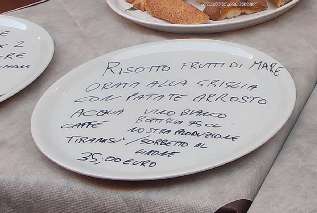 RISOTTO FRUTTI DI MARE
ORATA ALLA GRIGLIA
CON PATATE ARROSTO
ACQUA VINO BIANCO
BOTTIGLIA 75 CL
CAFFE' NOSTRA PRODUZIONE
TIRAMISU' /SORBETTO AL
LIMONE
35,00 EURO